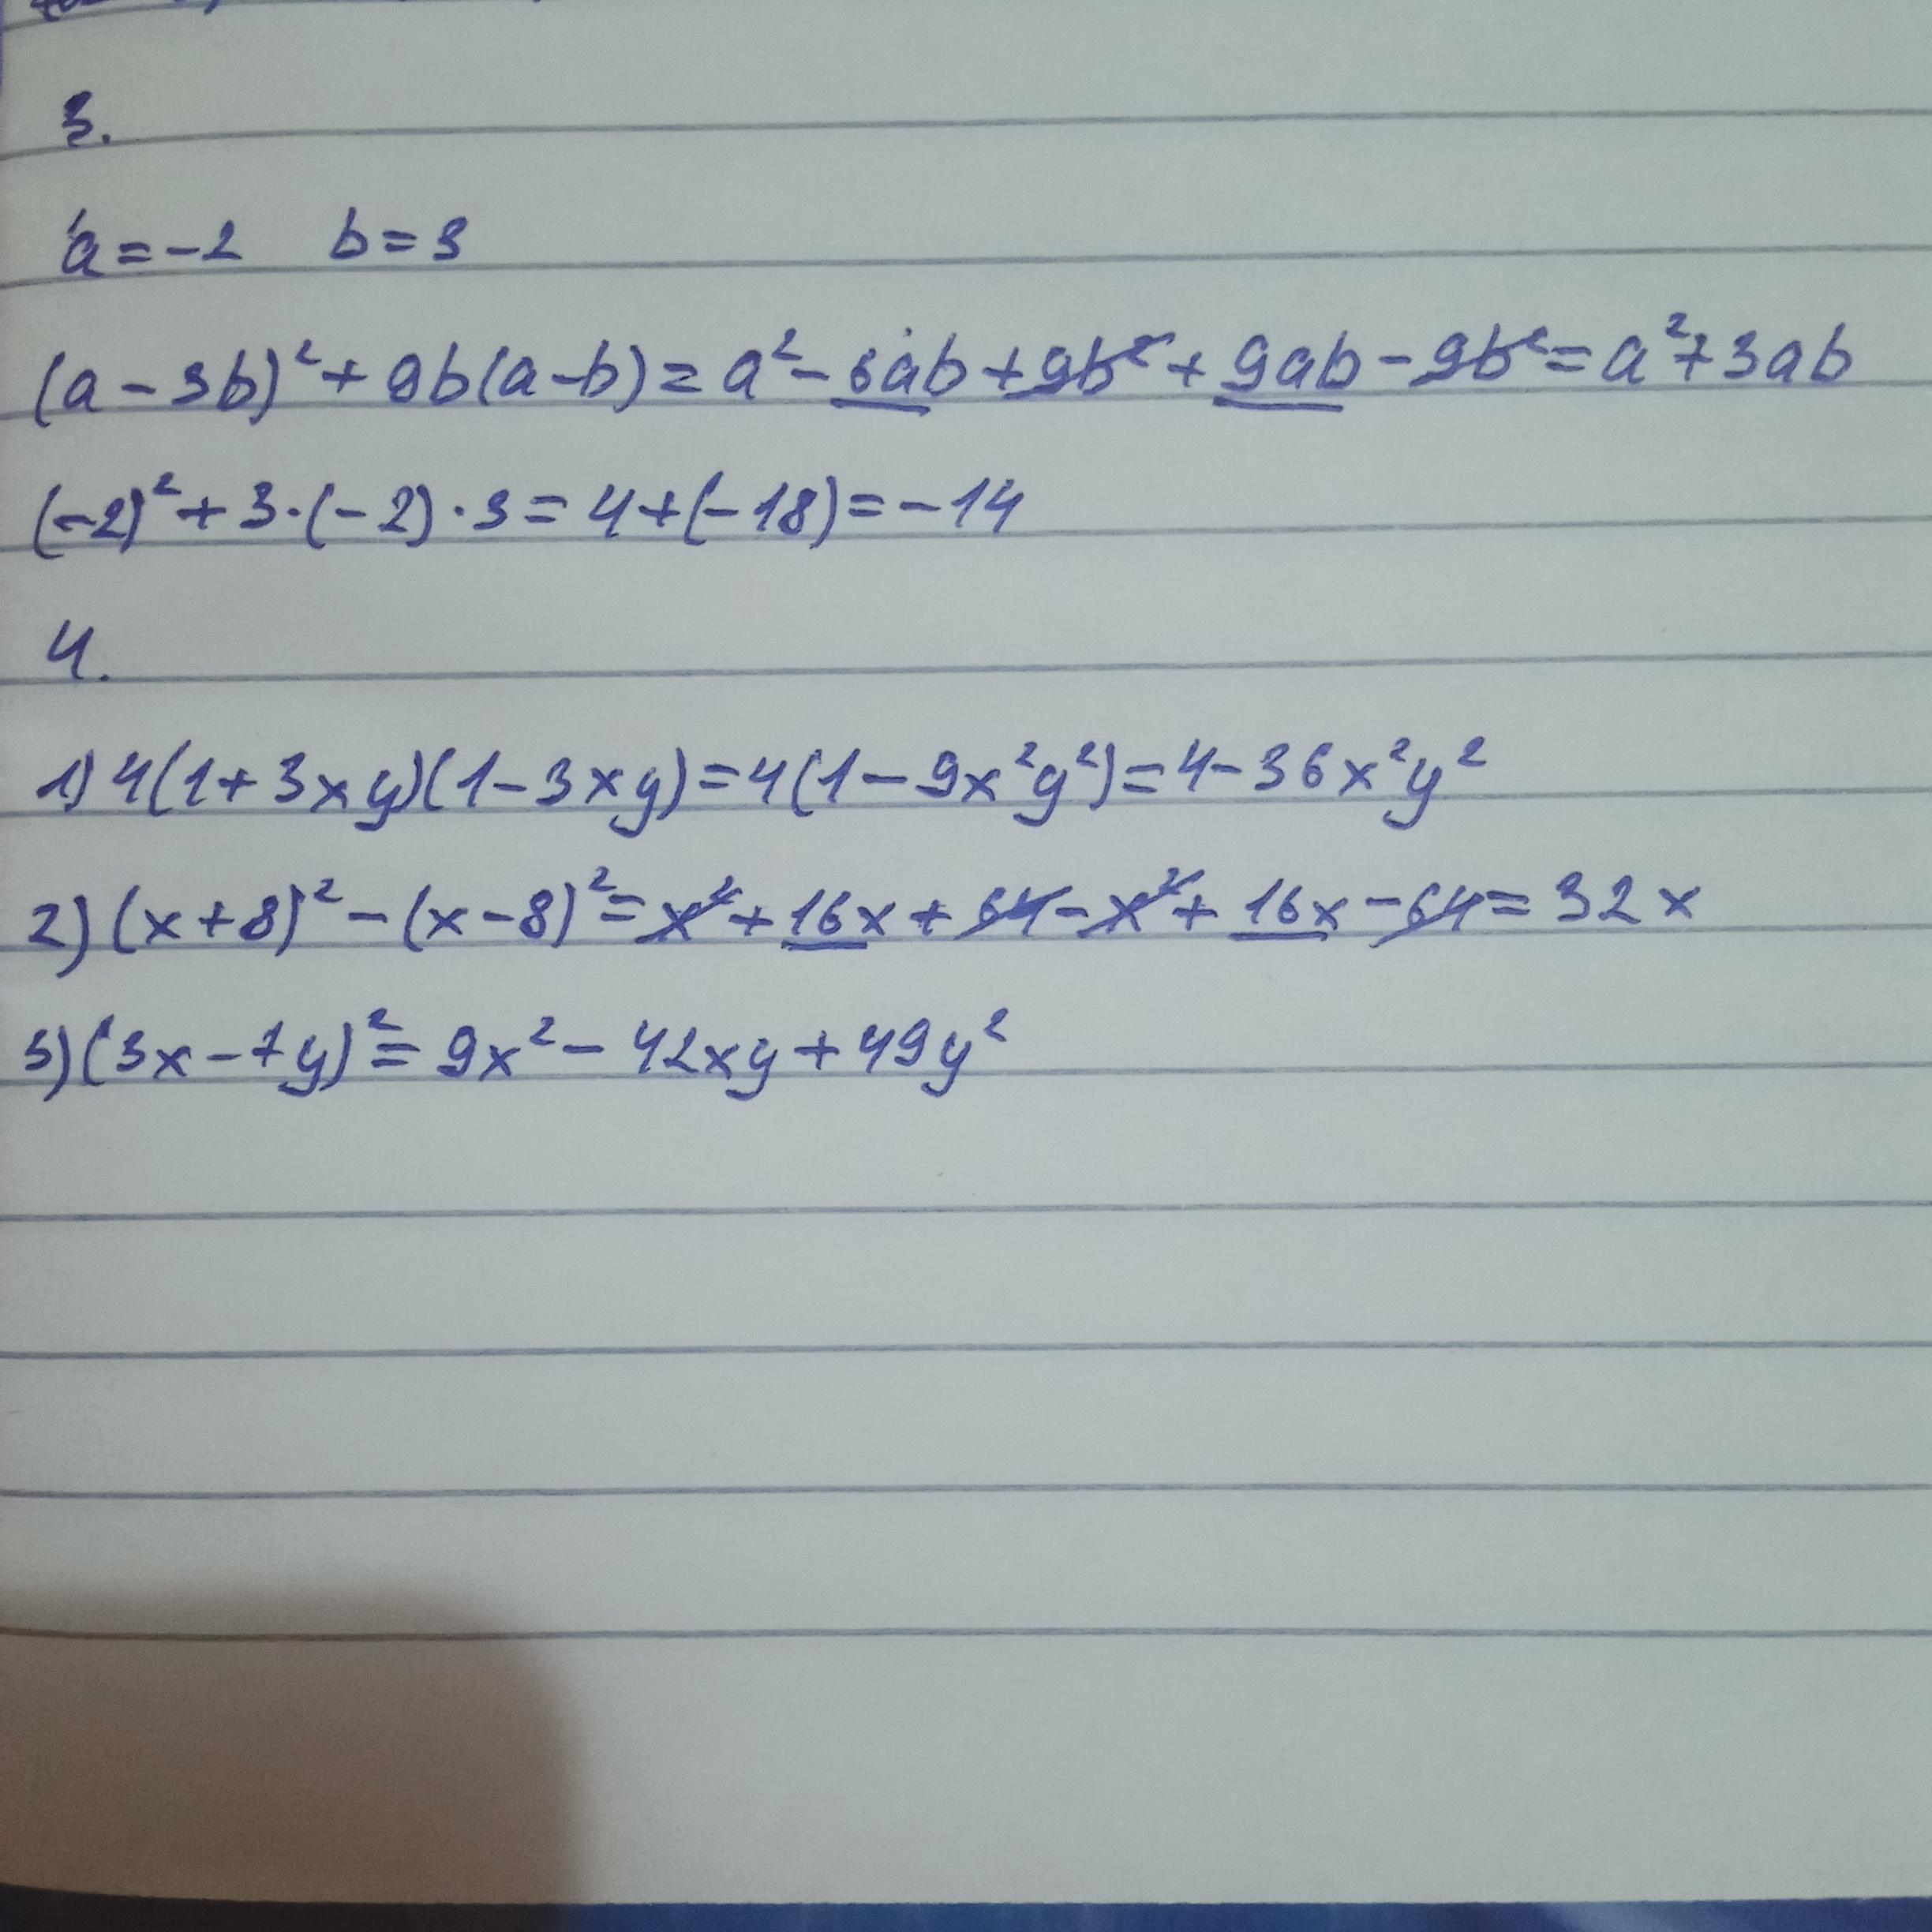 3.
a=-2 b=3
(a-3b)²+9b(a-b)=a²-6ab+9b²+9ab-9b²=a²+3ab
(-2)²+3·(-2)·3=4+(-18)=-14
4.
1) 4(1+3xy)(1-3xy)=4(1-9x²y²)=4-36x²y²
2) (x+8)²-(x-8)²=x²+16x+64-x²+16x-64=32x
3) (3x-7y)²=9x²-42xy+49y²